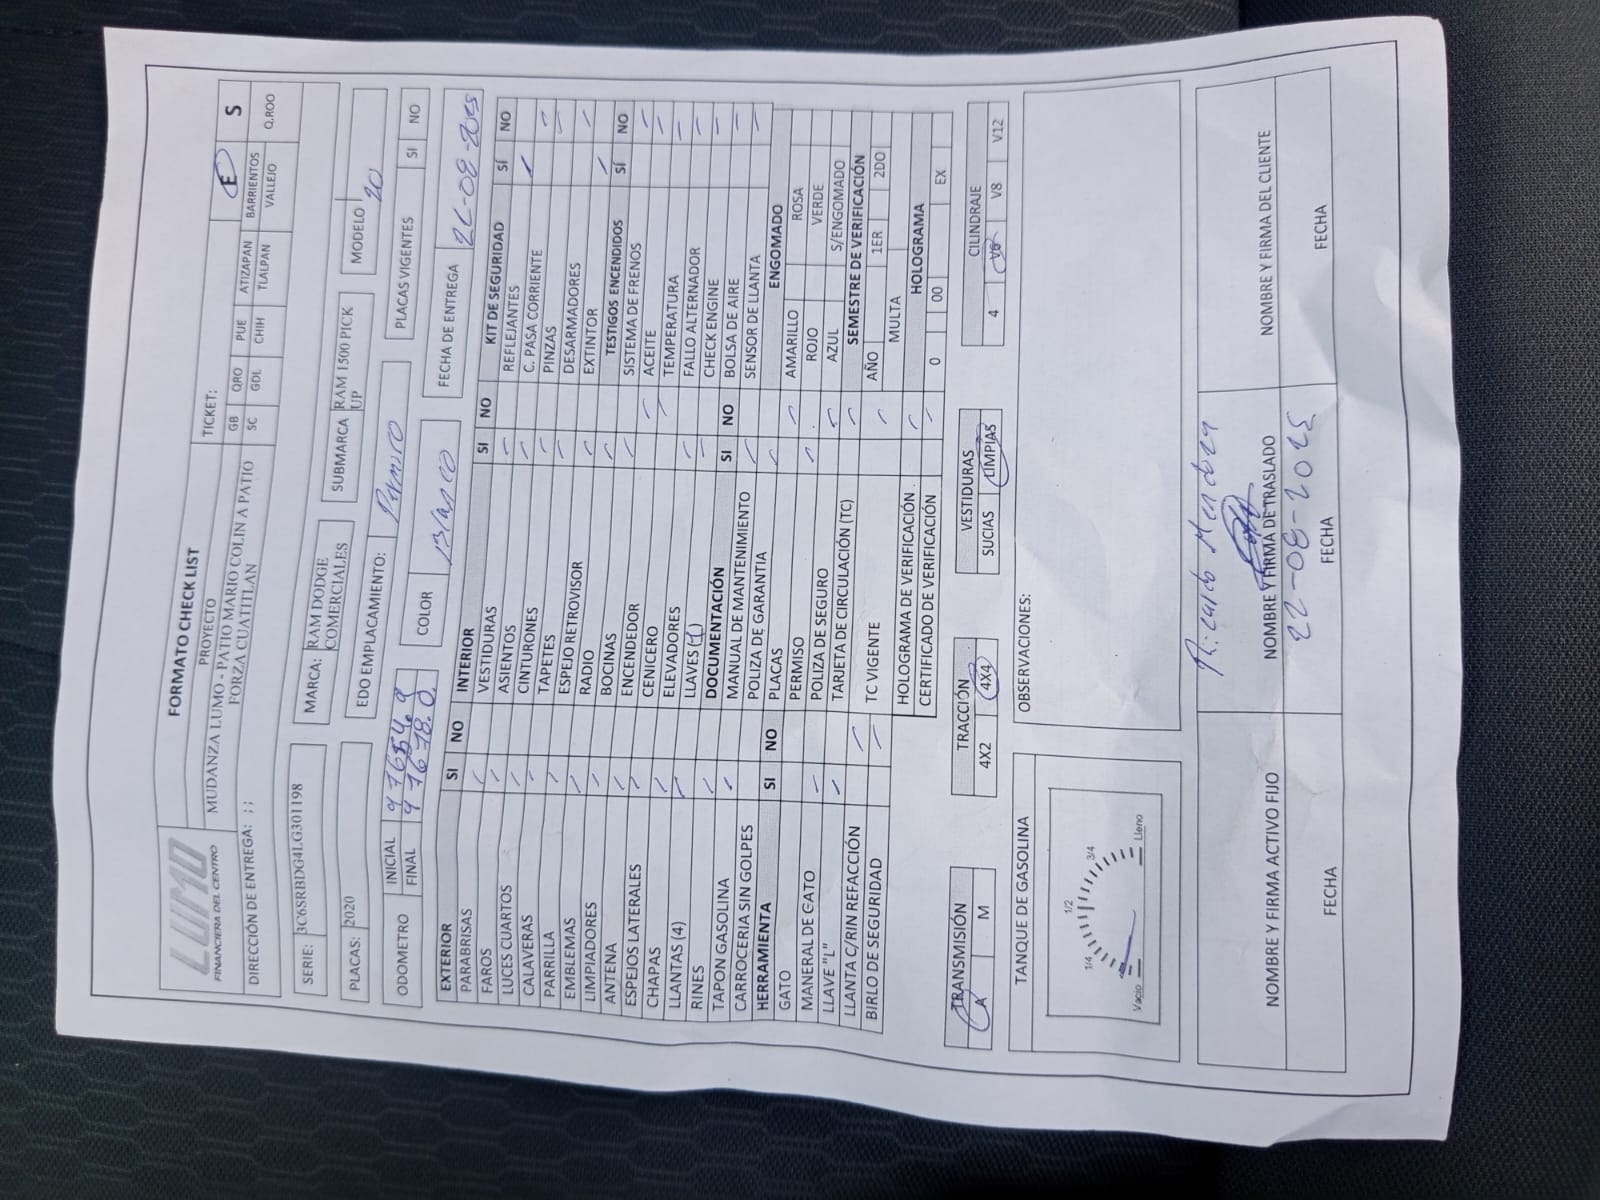 LUMO
FINANCIERA DEL CENTRO
FORMATO CHECK LIST
PROYECTO
TICKET:
E S
MUDANZA LUMO - PATIO MARIO COLIN A PATIO
FORZA CUATITLAN
GB QRO PUE ATIZAPAN BARRIENTOS
SC GDL CHIH TLALPAN VALLEJO Q.ROO
DIRECCIÓN DE ENTREGA: ; ;
SERIE: 3C6SRBDG4LG301198
MARCA: RAM DODGE COMERCIALES
SUBMARCA RAM 1500 PICK UP
MODELO 20
PLACAS: 2020
EDO EMPLACAMIENTO: Permiso
PLACAS VIGENTES SI NO
ODOMETRO INICIAL
FINAL 97678.0
COLOR Blanco
FECHA DE ENTREGA
EXTERIOR SI NO
PARABRISAS
FAROS
LUCES CUARTOS
CALAVERAS
PARRILLA
EMBLEMAS
LIMPIADORES
ANTENA
ESPEJOS LATERALES
CHAPAS
LLANTAS (4)
RINES
TAPON GASOLINA
CARROCERIA SIN GOLPES
HERRAMIENTA SI NO
GATO
MANERAL DE GATO
LLAVE "L"
LLANTA C/RIN REFACCIÓN
BIRLO DE SEGURIDAD
INTERIOR SI NO
VESTIDURAS
ASIENTOS
CINTURONES
TAPETES
ESPEJO RETROVISOR
RADIO
BOCINAS
ENCENDEDOR
CENICERO
ELEVADORES
LLAVES (1)
DOCUMENTACIÓN SI NO
MANUAL DE MANTENIMIENTO
POLIZA DE GARANTIA
PLACAS
PERMISO
POLIZA DE SEGURO
TARJETA DE CIRCULACIÓN (TC)
TC VIGENTE
HOLOGRAMA DE VERIFICACIÓN
CERTIFICADO DE VERIFICACIÓN
KIT DE SEGURIDAD SÍ NO
REFLEJANTES
C. PASA CORRIENTE
PINZAS
DESARMADORES
EXTINTOR
TESTIGOS ENCENDIDOS SÍ NO
SISTEMA DE FRENOS
ACEITE
TEMPERATURA
FALLO ALTERNADOR
CHECK ENGINE
BOLSA DE AIRE
SENSOR DE LLANTA
ENGOMADO
AMARILLO ROSA
ROJO VERDE
AZUL S/ENGOMADO
SEMESTRE DE VERIFICACIÓN
AÑO 1ER 2DO
MULTA
HOLOGRAMA
0 00 EX
TRANSMISIÓN
A M
TRACCIÓN
4X2 4X4
VESTIDURAS
SUCIAS LIMPIAS
CILINDRAJE
4 V6 V8 V12
TANQUE DE GASOLINA
Vacio 1/4 1/2 3/4 Lleno
OBSERVACIONES:
Ricardo Mendoza
NOMBRE Y FIRMA ACTIVO FIJO
NOMBRE Y FIRMA DE TRASLADO
NOMBRE Y FIRMA DEL CLIENTE
22-08-2025
FECHA
FECHA
FECHA